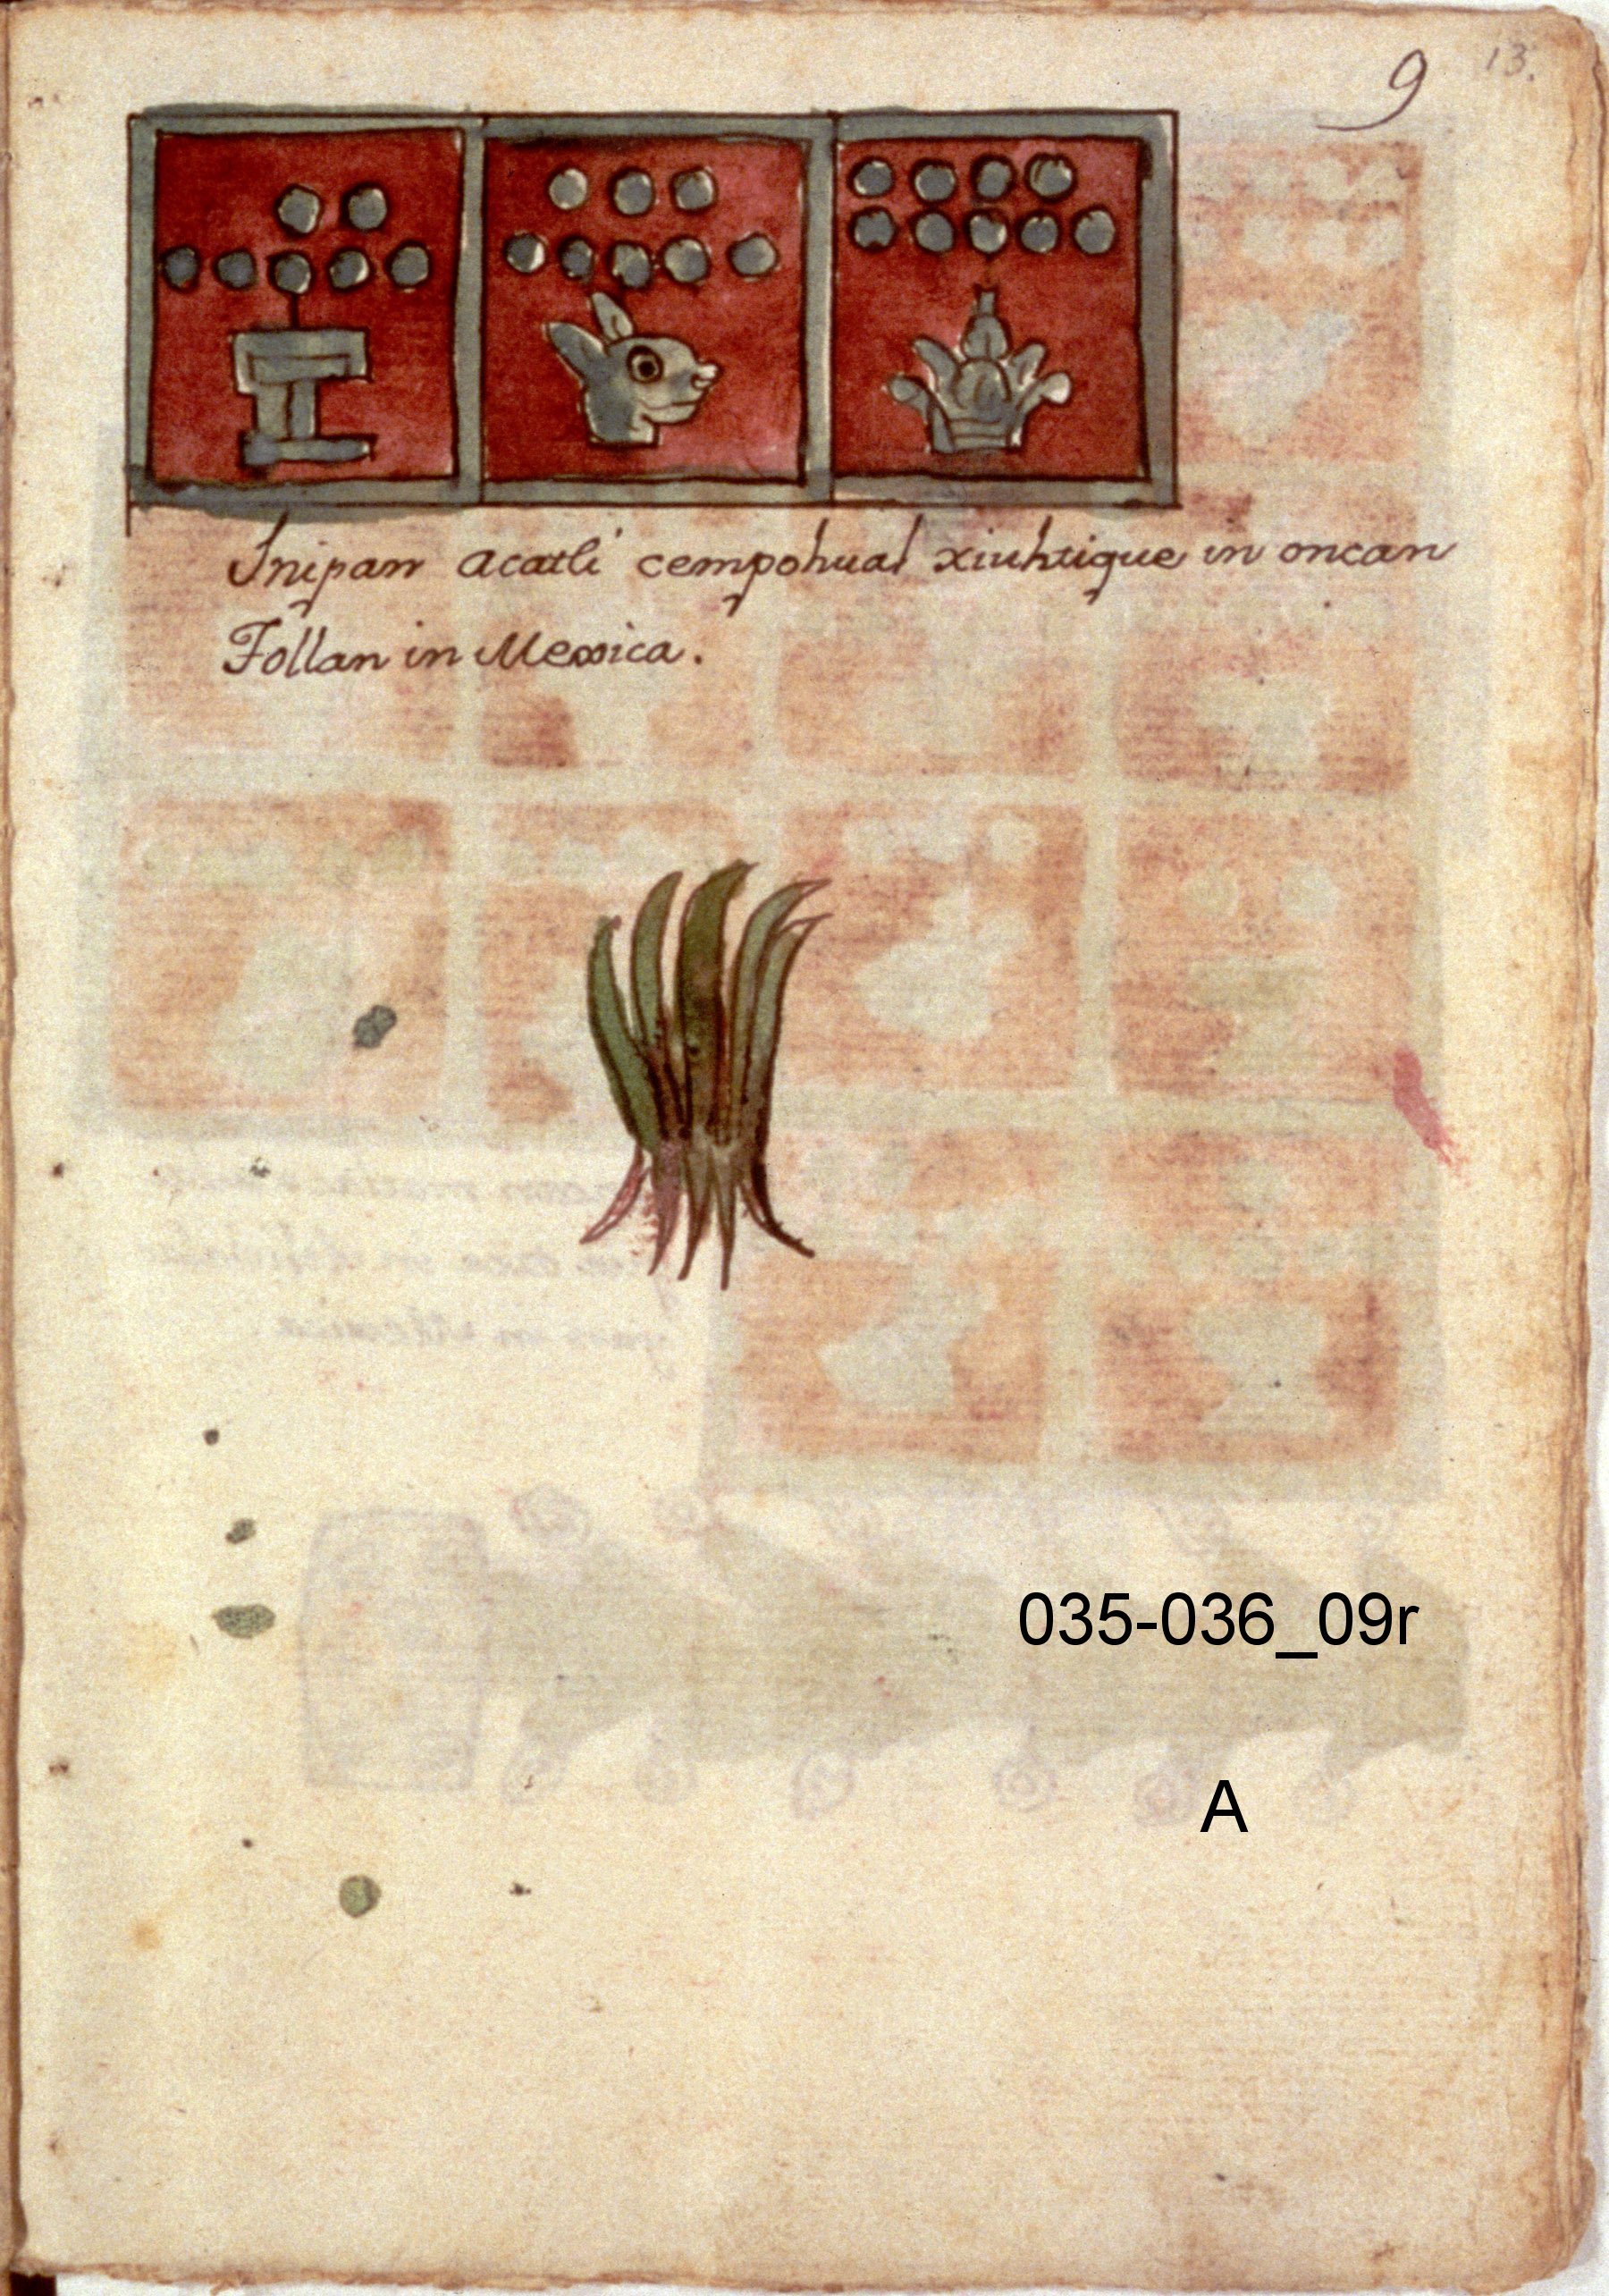 9 13.
Inipan acatli cempohual xiuhtique in oncan
Tollan in Mexica.
035-036_09r
A